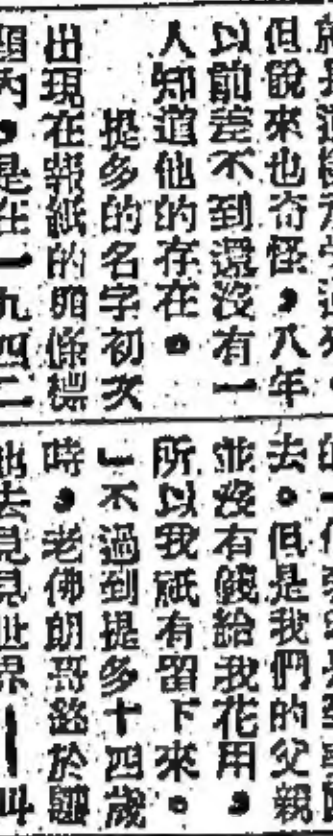 但說來也奇怪，八年
以前差不到還沒有一
人知道他的存在。
提多的名字初次
出現在報紙的頭條標
題內，是在一九四二
去。但是我們的父親
並沒有錢給我花用，
所以我祇有留下來。
」不過到提多十四歲
時，老佛朗哥終於
他去見見世界——叫